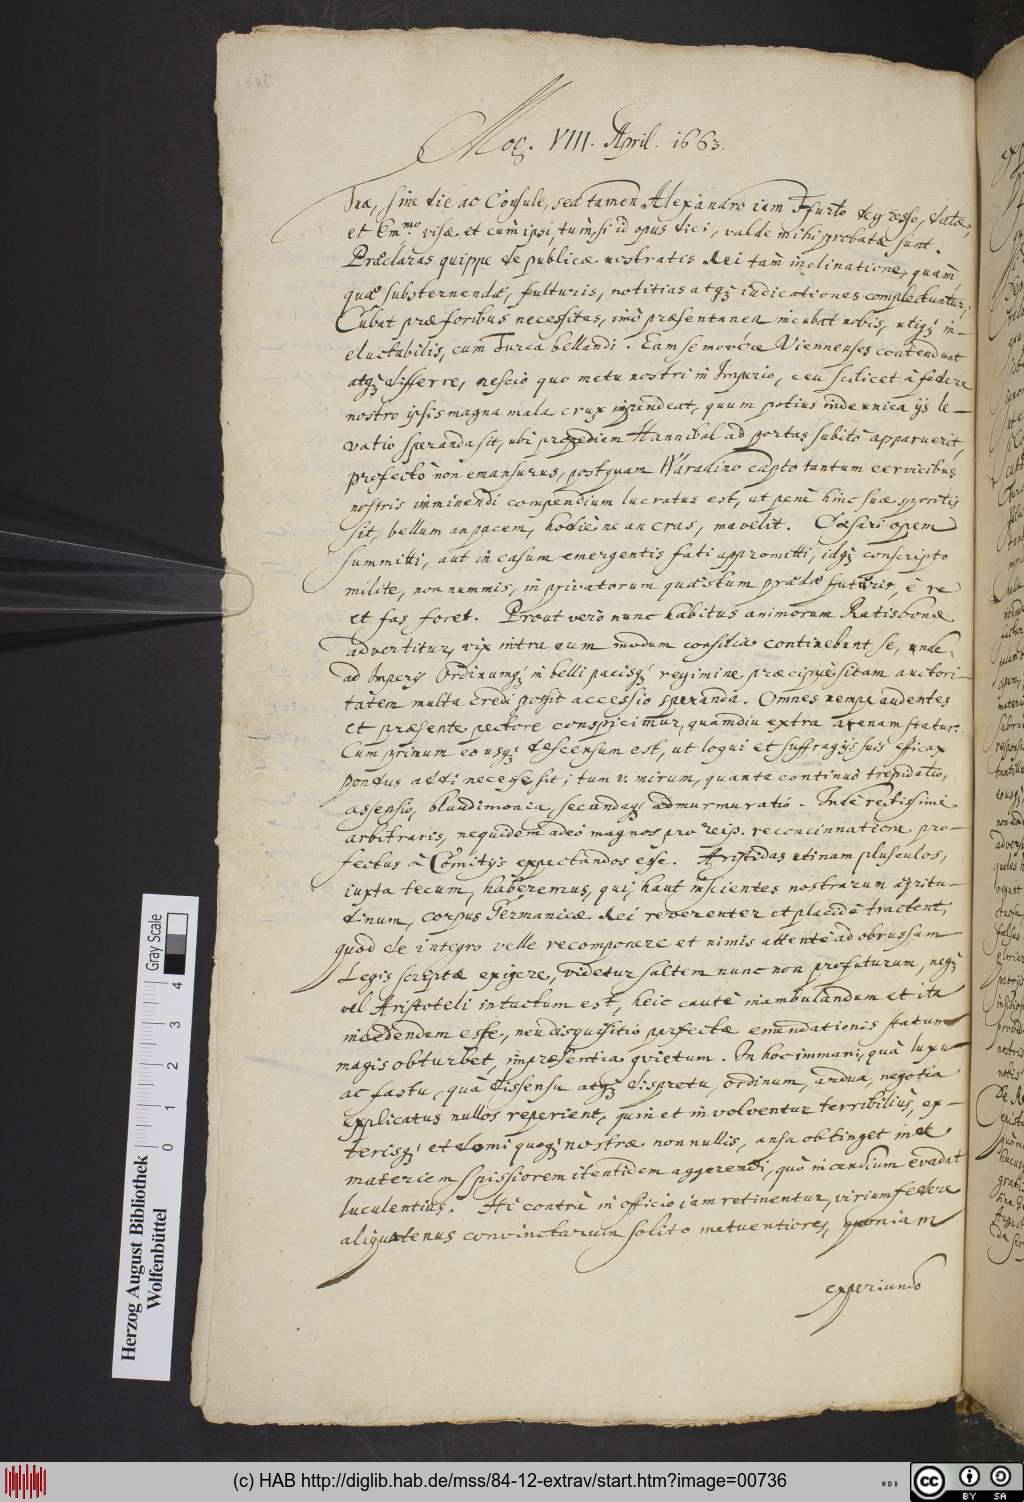 Mog. VIII. April. 1663.
Tuæ, sine die ac Consule, sed tamen Alexandro iam Ffurto degresso, datæ,
et Emmo. visæ et cum ipsi, tum, si id opus dici, valde mihi probatæ sunt.
Præclaras quippe de publicæ nostratis Rei tam inclinatione, quam
quæ substernendæ, fulturis, notitias atq; iudicationes complectuntur.
Cubat præ foribus necessitas, imò præsentanea incubat nobis, utiq; in-
eluctabilis, cum Turca bellandi. Eam se movére Viennenses contendunt
atq; differre, nescio quo metu nostri in Imperio, ceu scilicet à fœdere
nostro ipsis magna mala crux impendeat, quum potius inde unica ijs le-
vatio speranda sit, ubi propediem Hannibal ad portas subitò apparuerit,
profectò non emansurus, postquam Waradino capto tantum cervicibus
nostris imminendi compendium lucratus est, ut penè hinc suæ spontis
sit, bellum an pacem, hodiène an cras, mavelit. Cæsari opem
summitti, aut in casum emergentis fati appromitti, idq; conscripto
milite, non nummis, in privatorum quæstum prædæ futuris, è re
et fas foret. Prout verò nunc habitus animorum Ratisbonæ
advertitur, vix intra eum modum consilia continebunt se, unde
ad Imperij Ordinumq; in belli pacisq; regimine præcipuè sitam auctori-
tatem multa credi possit accessio speranda. Omnes nempe audentes
et præsente pectore conspicimur, quamdiu extra arenam statur.
Cum primum eo usq; descensum est, ut loqui et suffragijs suis efficax
pondus addi necesse sit; tum v. mirum, quanta continuò trepidatio,
assensio, blandimonia, secundaq; admurmuratio. Inde rectissimè
arbitraris, nequidem adeò magnos pro reip. reconcinnatione pro-
fectus à Comitijs expectandos esse. Aristidas utinam plusculos,
iuxta tecum, haberemus, qui, haut inscientes nostrarum ægritu-
dinum, corpus Germanicæ Rei reverenter et placidè tractent,
quod de integro velle recomponere et nimis attentè ad obrussam
Legis scriptæ exigere, videtur saltem nunc non profuturum, neq;
vel Aristoteli intuctum est, heic cautè inambulandum et ita
incedendum esse, neu disquisitio perfectæ emendationis statum
magis obturbet, impræsentia quietum. In hoc immani, quà luxu
ac fastu, quà dissensu atq; dispretu, ordinum, ardua, negotia
explicatus nullos reperient, quin et involventur terribilius, ex-
terisq; et domi quoq; nostræ nonnullis, ansa obtinget inde
materiem spissiorem itentidem aggerendi, quò incendium evadat
luculentius. Hi contrà in officio iam retinentur, virium fœdere
aliquatenus convinctarum solito metuentiores, quoniam
experiundo
Herzog August Bibliothek
Wolfenbüttel
0 1 2 3 4
Gray Scale
(c) HAB http://diglib.hab.de/mss/84-12-extrav/start.htm?image=00736
cc BY SA